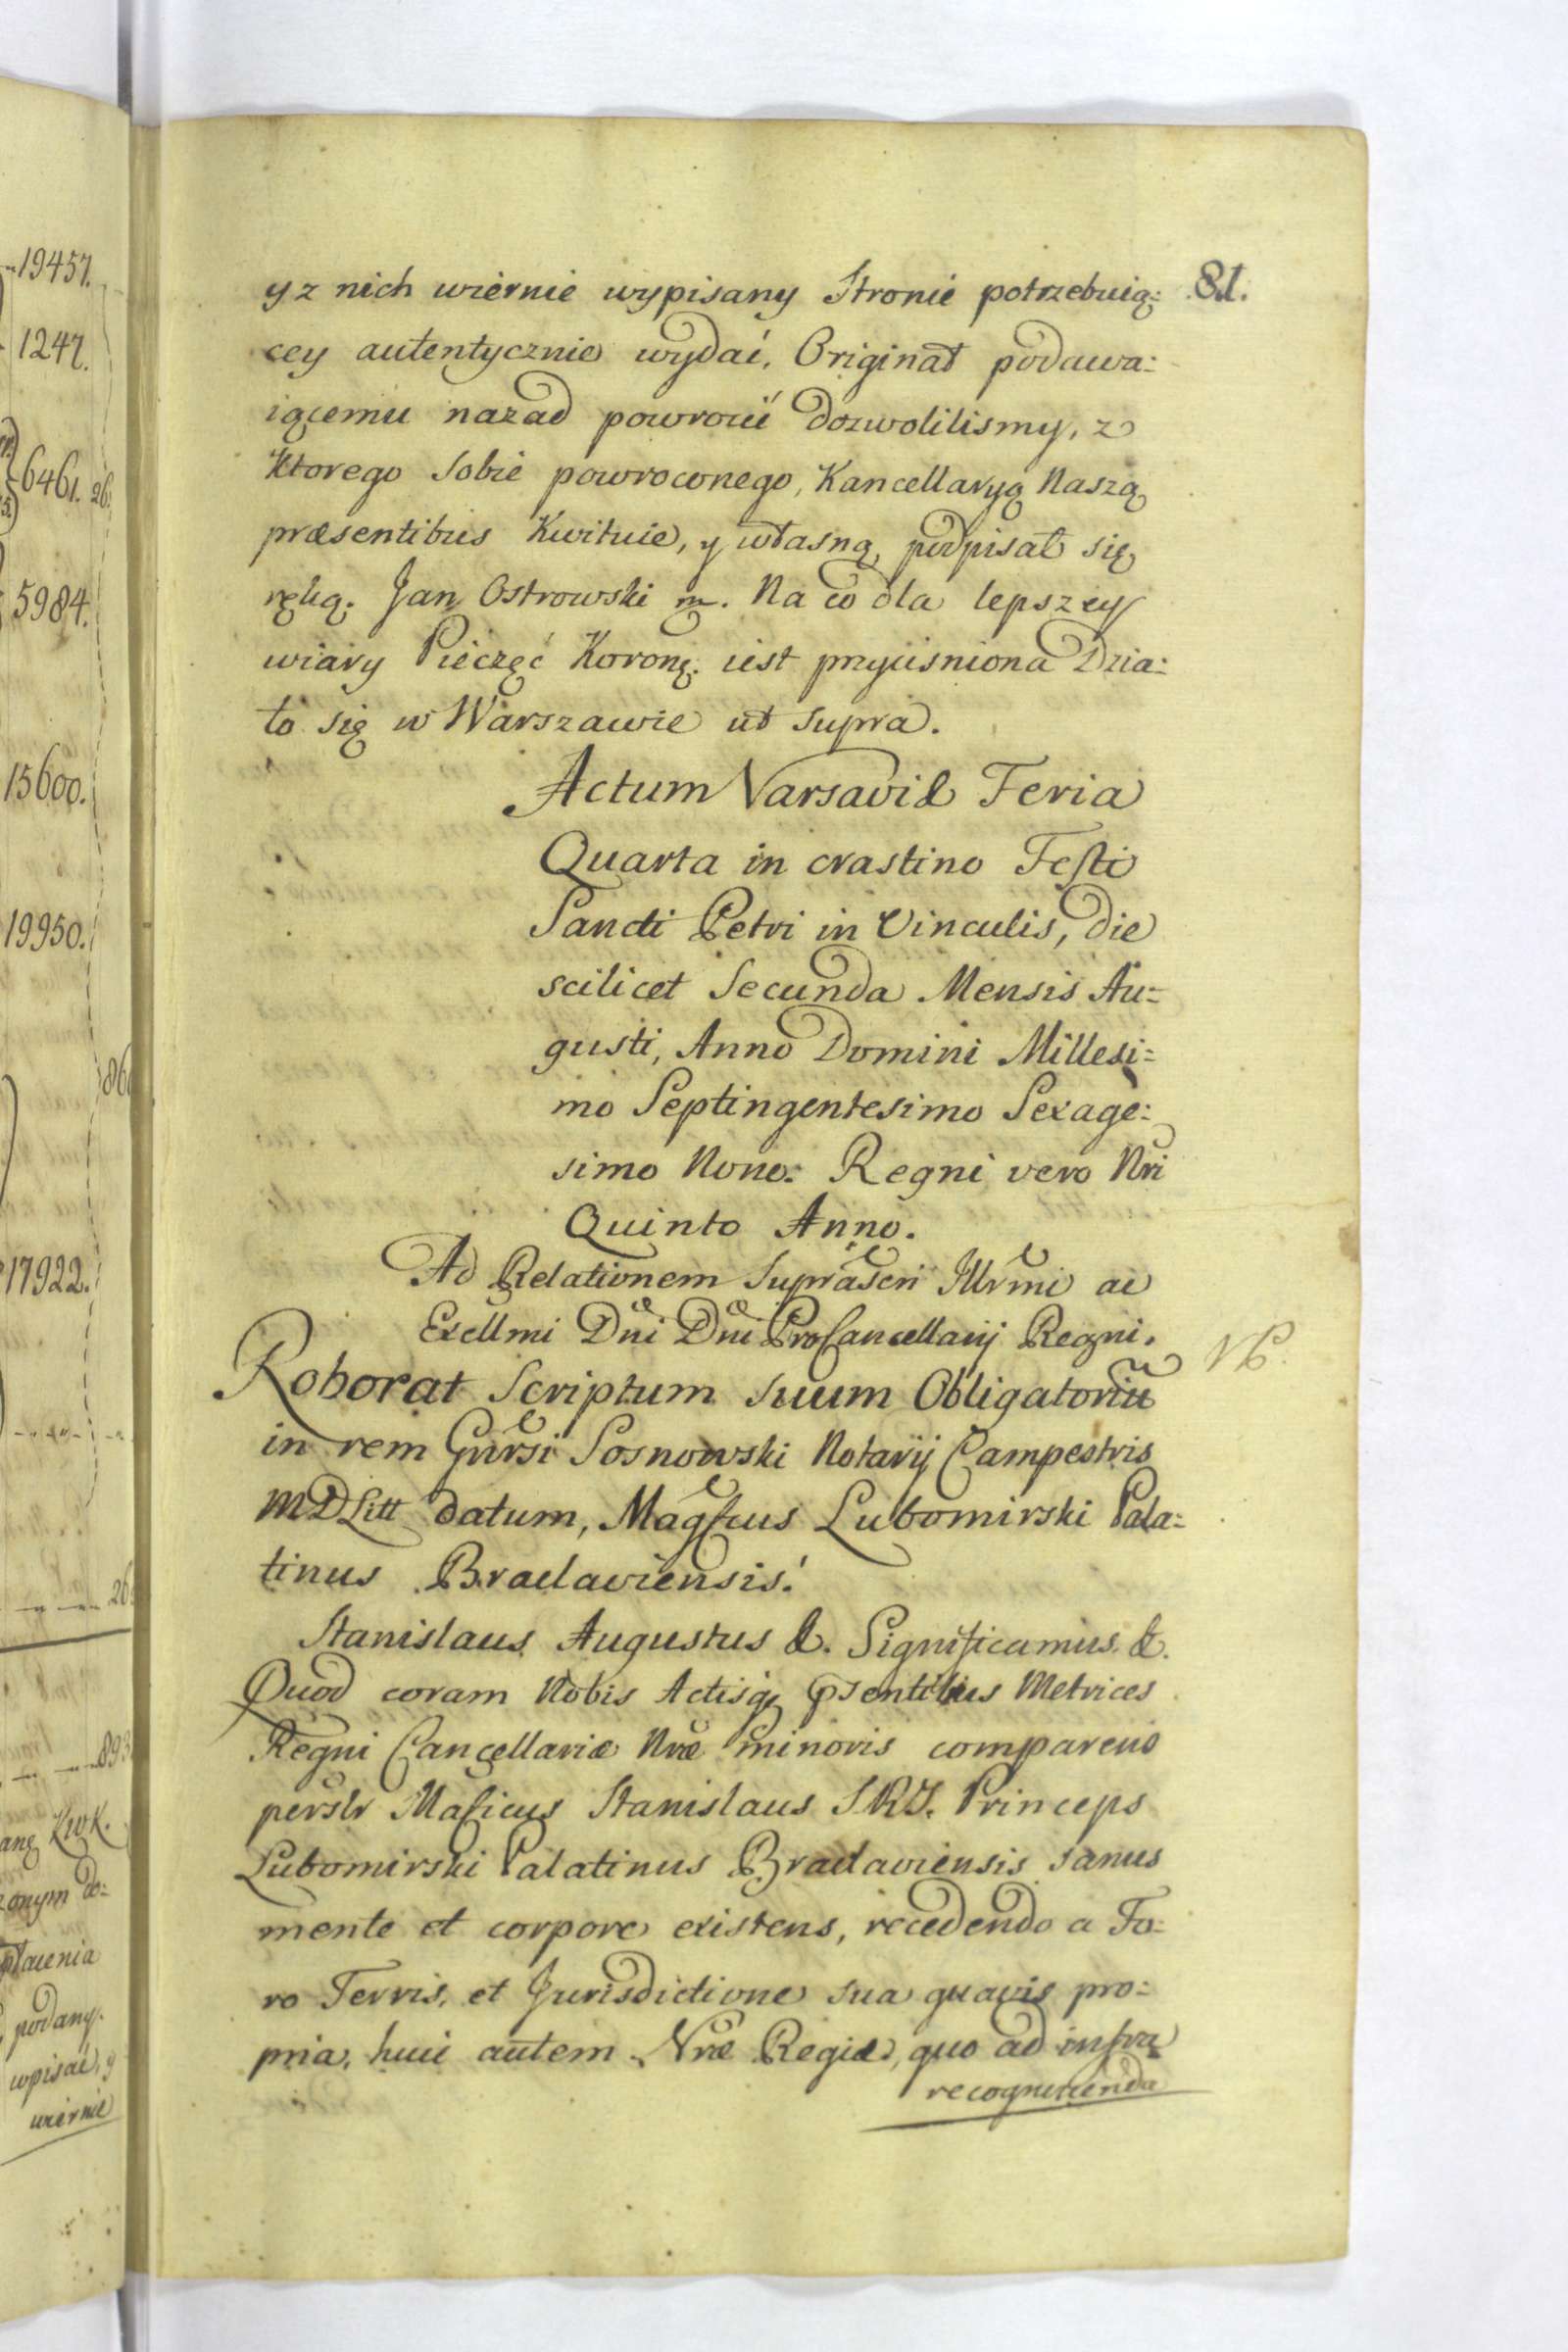 81.
y z nich wiernie wypisany Stronie potrzebuią:
cey autentycznie wydać, Originał podawa:
iącemu nazad powrocić dozwolilismy, z
ktorego sobie powroconego, Kancellaryą Naszą
præsentibus kwituie, y własną podpisał się
ręką. Jan Ostrowski m. Na co dla lepszey
wiary Pieczęć Koroną. iest przyciśniona Dzia:
ło się w Warszawie ut supra.
Actum Varsaviæ Feria
Quarta in crastino Festi
Sancti Petri in Vinculis, die
scilicet Secunda Mensis Au=
gusti, Anno Domini Millesi=
mo Septingentesimo Sexage:
simo Nono. Regni vero Nri
Quinto Anno.
Ad Relationem Suprascri Illrmi ac
Excllmi Dni Dni ProCancellarij Regni.
NB.
Roborat Scriptum suum Obligatoriu
in rem Gnrsi Sosnowski Notarij Campestris
MDLitt datum, Magfcus Lubomirski Pala=
tinus Braclaviensis.
Stanislaus Augustus &. Significamus. &.
Quod coram Nobis Actisq psentibus Metrices
Regni Cancellariæ Nræ minoris comparens
perslr Maficus Stanislaus S.R.J. Princeps
Lubomirski Palatinus Braclaviensis sanus
mente et corpore existens, recedendo a Fo:
ro Terris, et Jurisdictione sua quavis pro:
pria, huic autem Nræ Regiæ, quo ad infra
recognoscenda
19457.
1247.
6461. 26.
5984.
15600.
19950.
17922.
26
893
KwK.
onym do:
płacenia
podany.
wpisać, y
wiernie